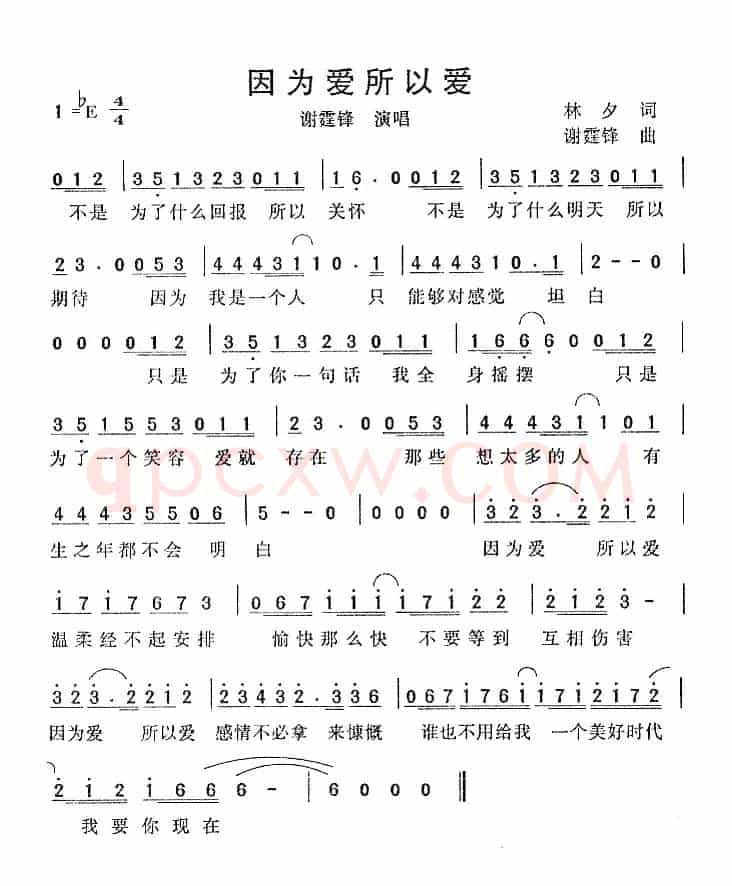 因为爱所以爱
1=♭E 4/4
谢霆锋 演唱
林夕 词
谢霆锋 曲
0 1 2 | 3 5 1 3 2 3 0 1 1 | 1 6 · 0 0 1 2 | 3 5 1 3 2 3 0 1 1 |
不是 为了什么回报 所以 关怀 不是 为了什么明天 所以
2 3 · 0 0 5 3 | 4 4 4 3 1 1 0 · 1 | 4 4 4 3 1 0 · 1 | 2 - - 0 |
期待 因为 我是一个人 只 能够对感觉 坦白
0 0 0 0 1 2 | 3 5 1 3 2 3 0 1 1 | 1 6 6 6 0 0 1 2 |
只是 为了你一句话 我全 身摇摆 只是
3 5 1 5 5 3 0 1 1 | 2 3 · 0 0 5 3 | 4 4 4 3 1 1 0 1 |
为了一个笑容 爱就 存在 那些 想太多的人 有
4 4 4 3 5 5 0 6 | 5 - - 0 | 0 0 0 0 | 3 2 3 · 2 2 1 2 |
生之年都不会 明白 因为爱 所以爱
1 7 1 7 6 7 3 | 0 6 7 1 1 1 1 7 1 2 2 | 2 1 2 3 - |
温柔经不起安排 愉快那么快 不要等到 互相伤害
3 2 3 · 2 2 1 2 | 2 3 4 3 2 · 3 3 6 | 0 6 7 1 7 6 1 1 7 1 2 1 7 2 |
因为爱 所以爱 感情不必拿 来慷慨 谁也不用给我 一个美好时代
2 1 2 1 6 6 6 - | 6 0 0 0 ‖
我要你现在
qpcxw.COM